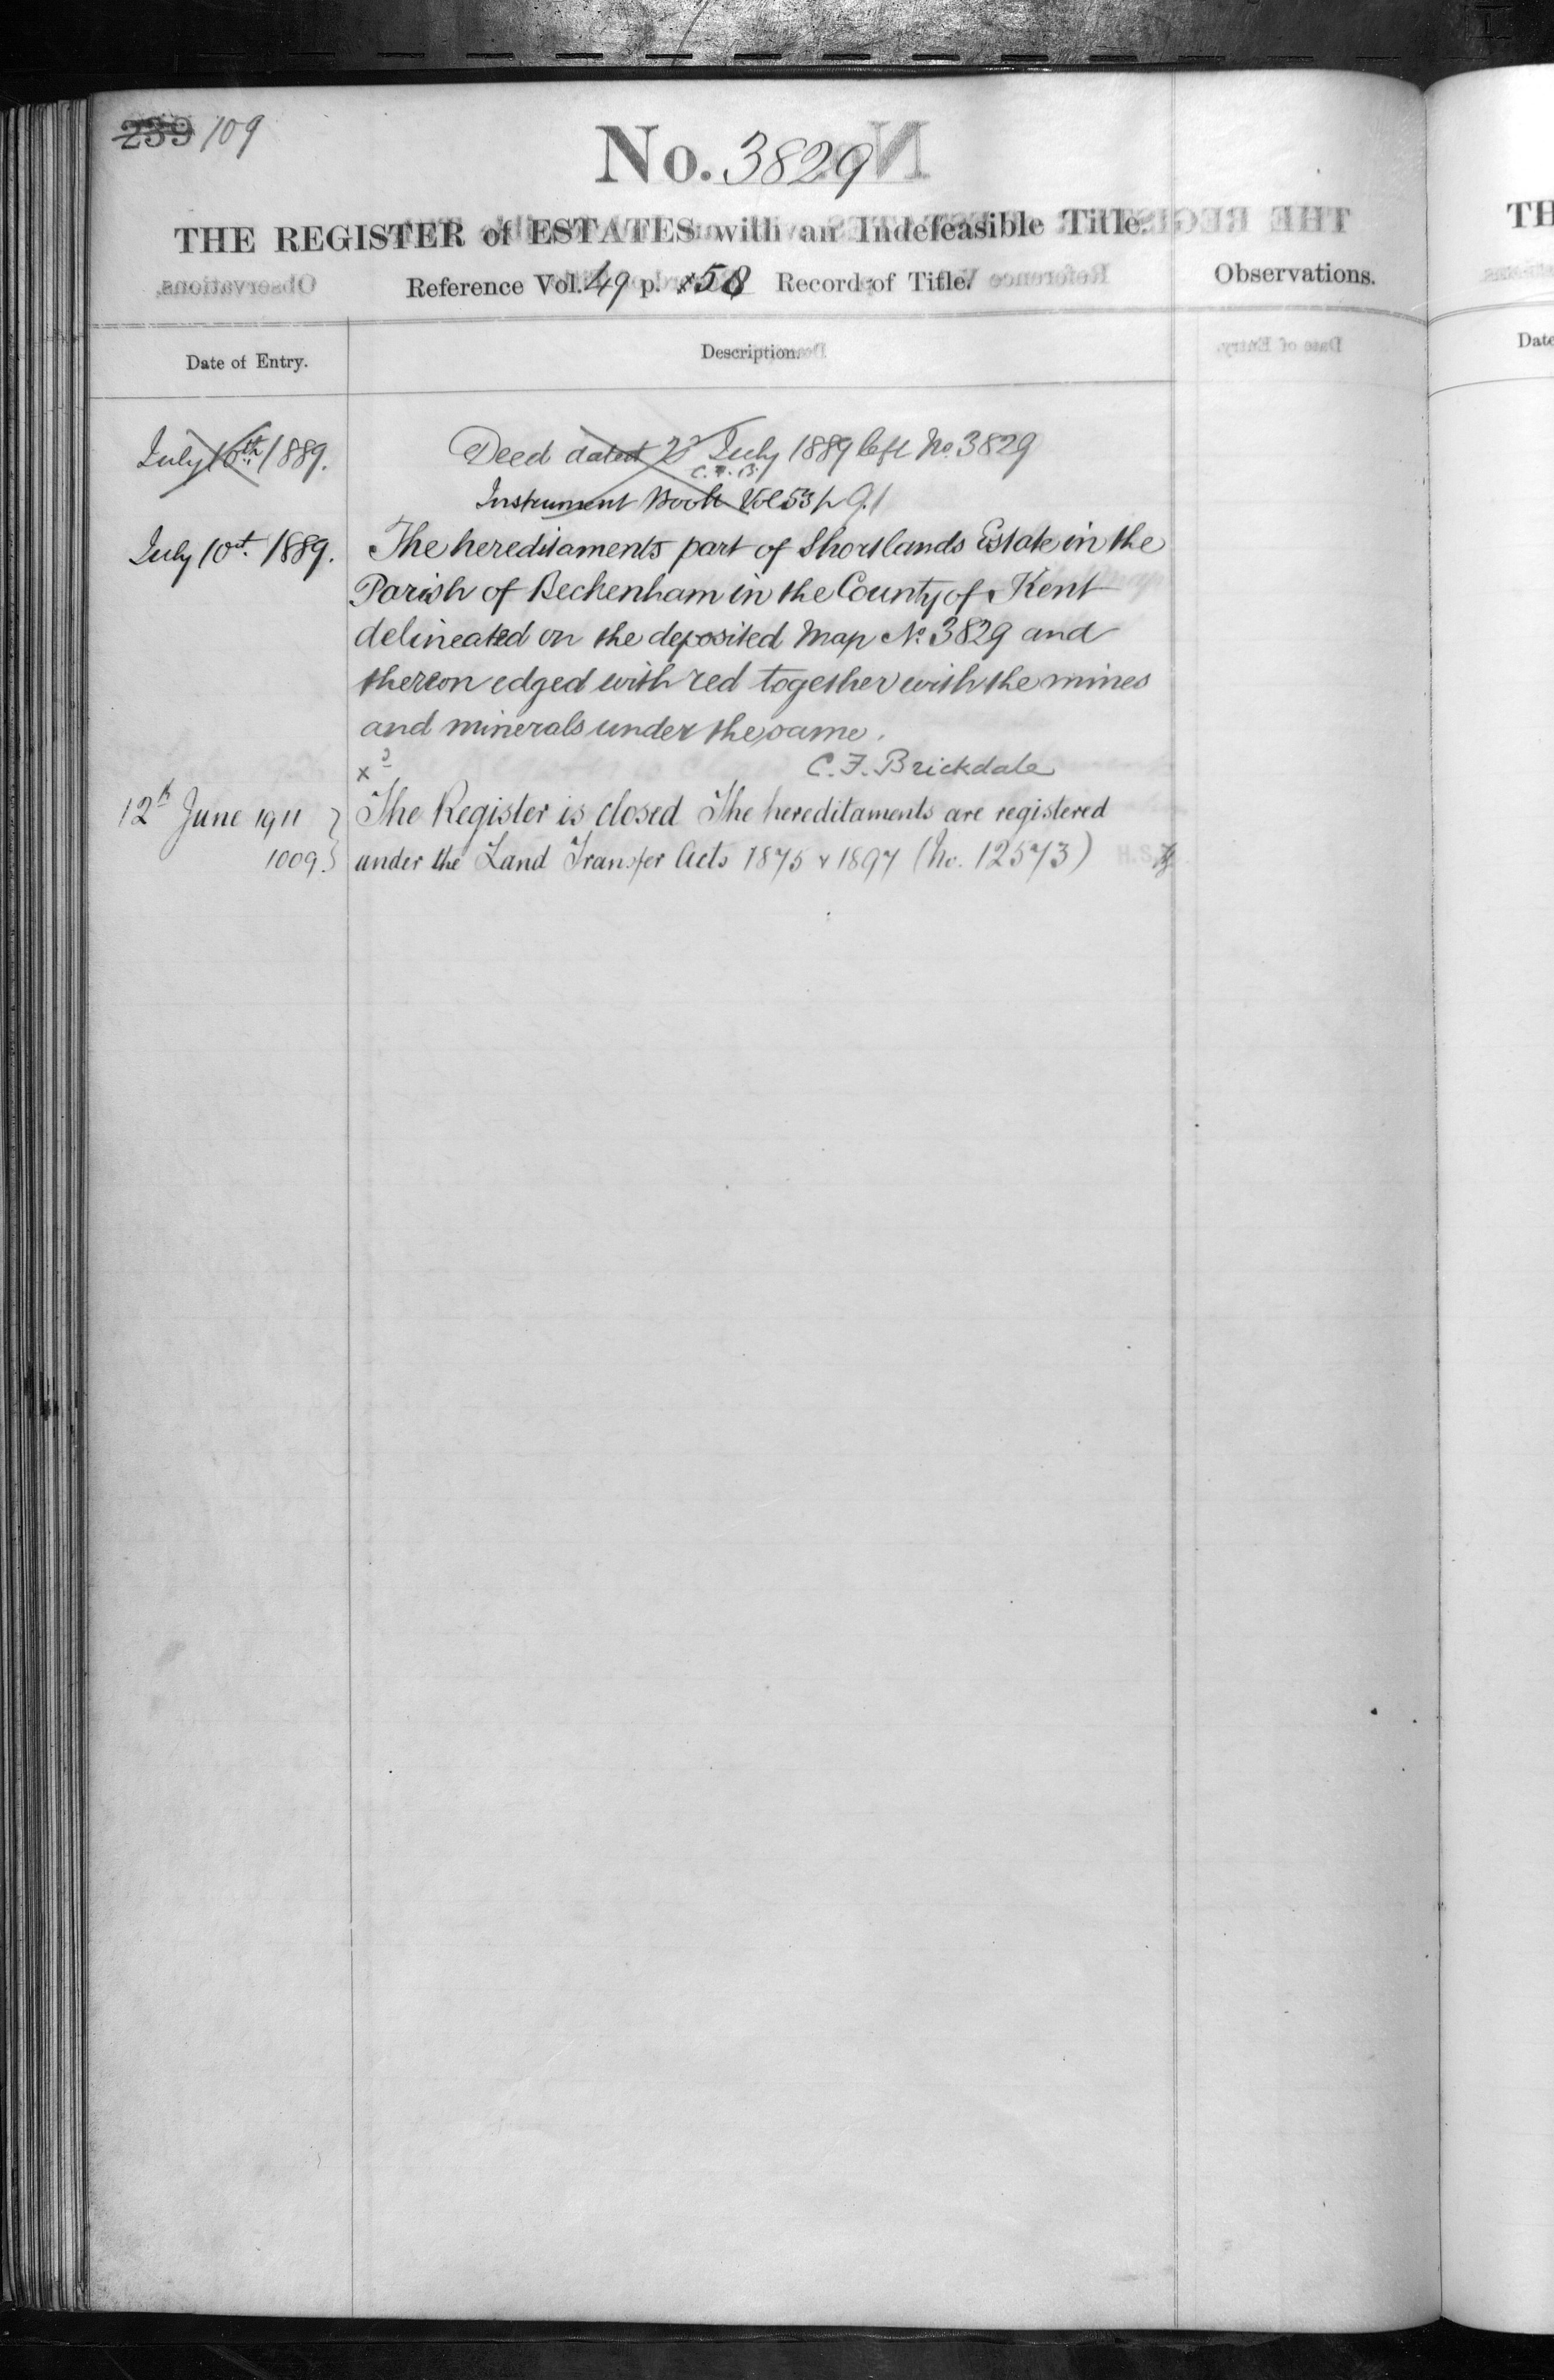 239 109
No. 3829
THE REGISTER of ESTATES with an Indefeasible Title.
Reference Vol. 49 p. 58 Record of Title.
Observations.
Date of Entry.
Description.
July 10th 1889.
Deed dated 2d July 1889 left No. 3829
C. F. B.
Instrument Book Vol 53 p 91
July 10th 1889.
The hereditaments part of Shortlands Estate in the
Parish of Beckenham in the County of Kent
delineated on the deposited Map No. 3829 and
thereon edged with red together with the mines
and minerals under the same.
C. F. Brickdale
12th June 1911
The Register is closed The hereditaments are registered
1009.
under the Land Transfer Acts 1875 & 1897 (No. 12573)
H.S.
TH
Date